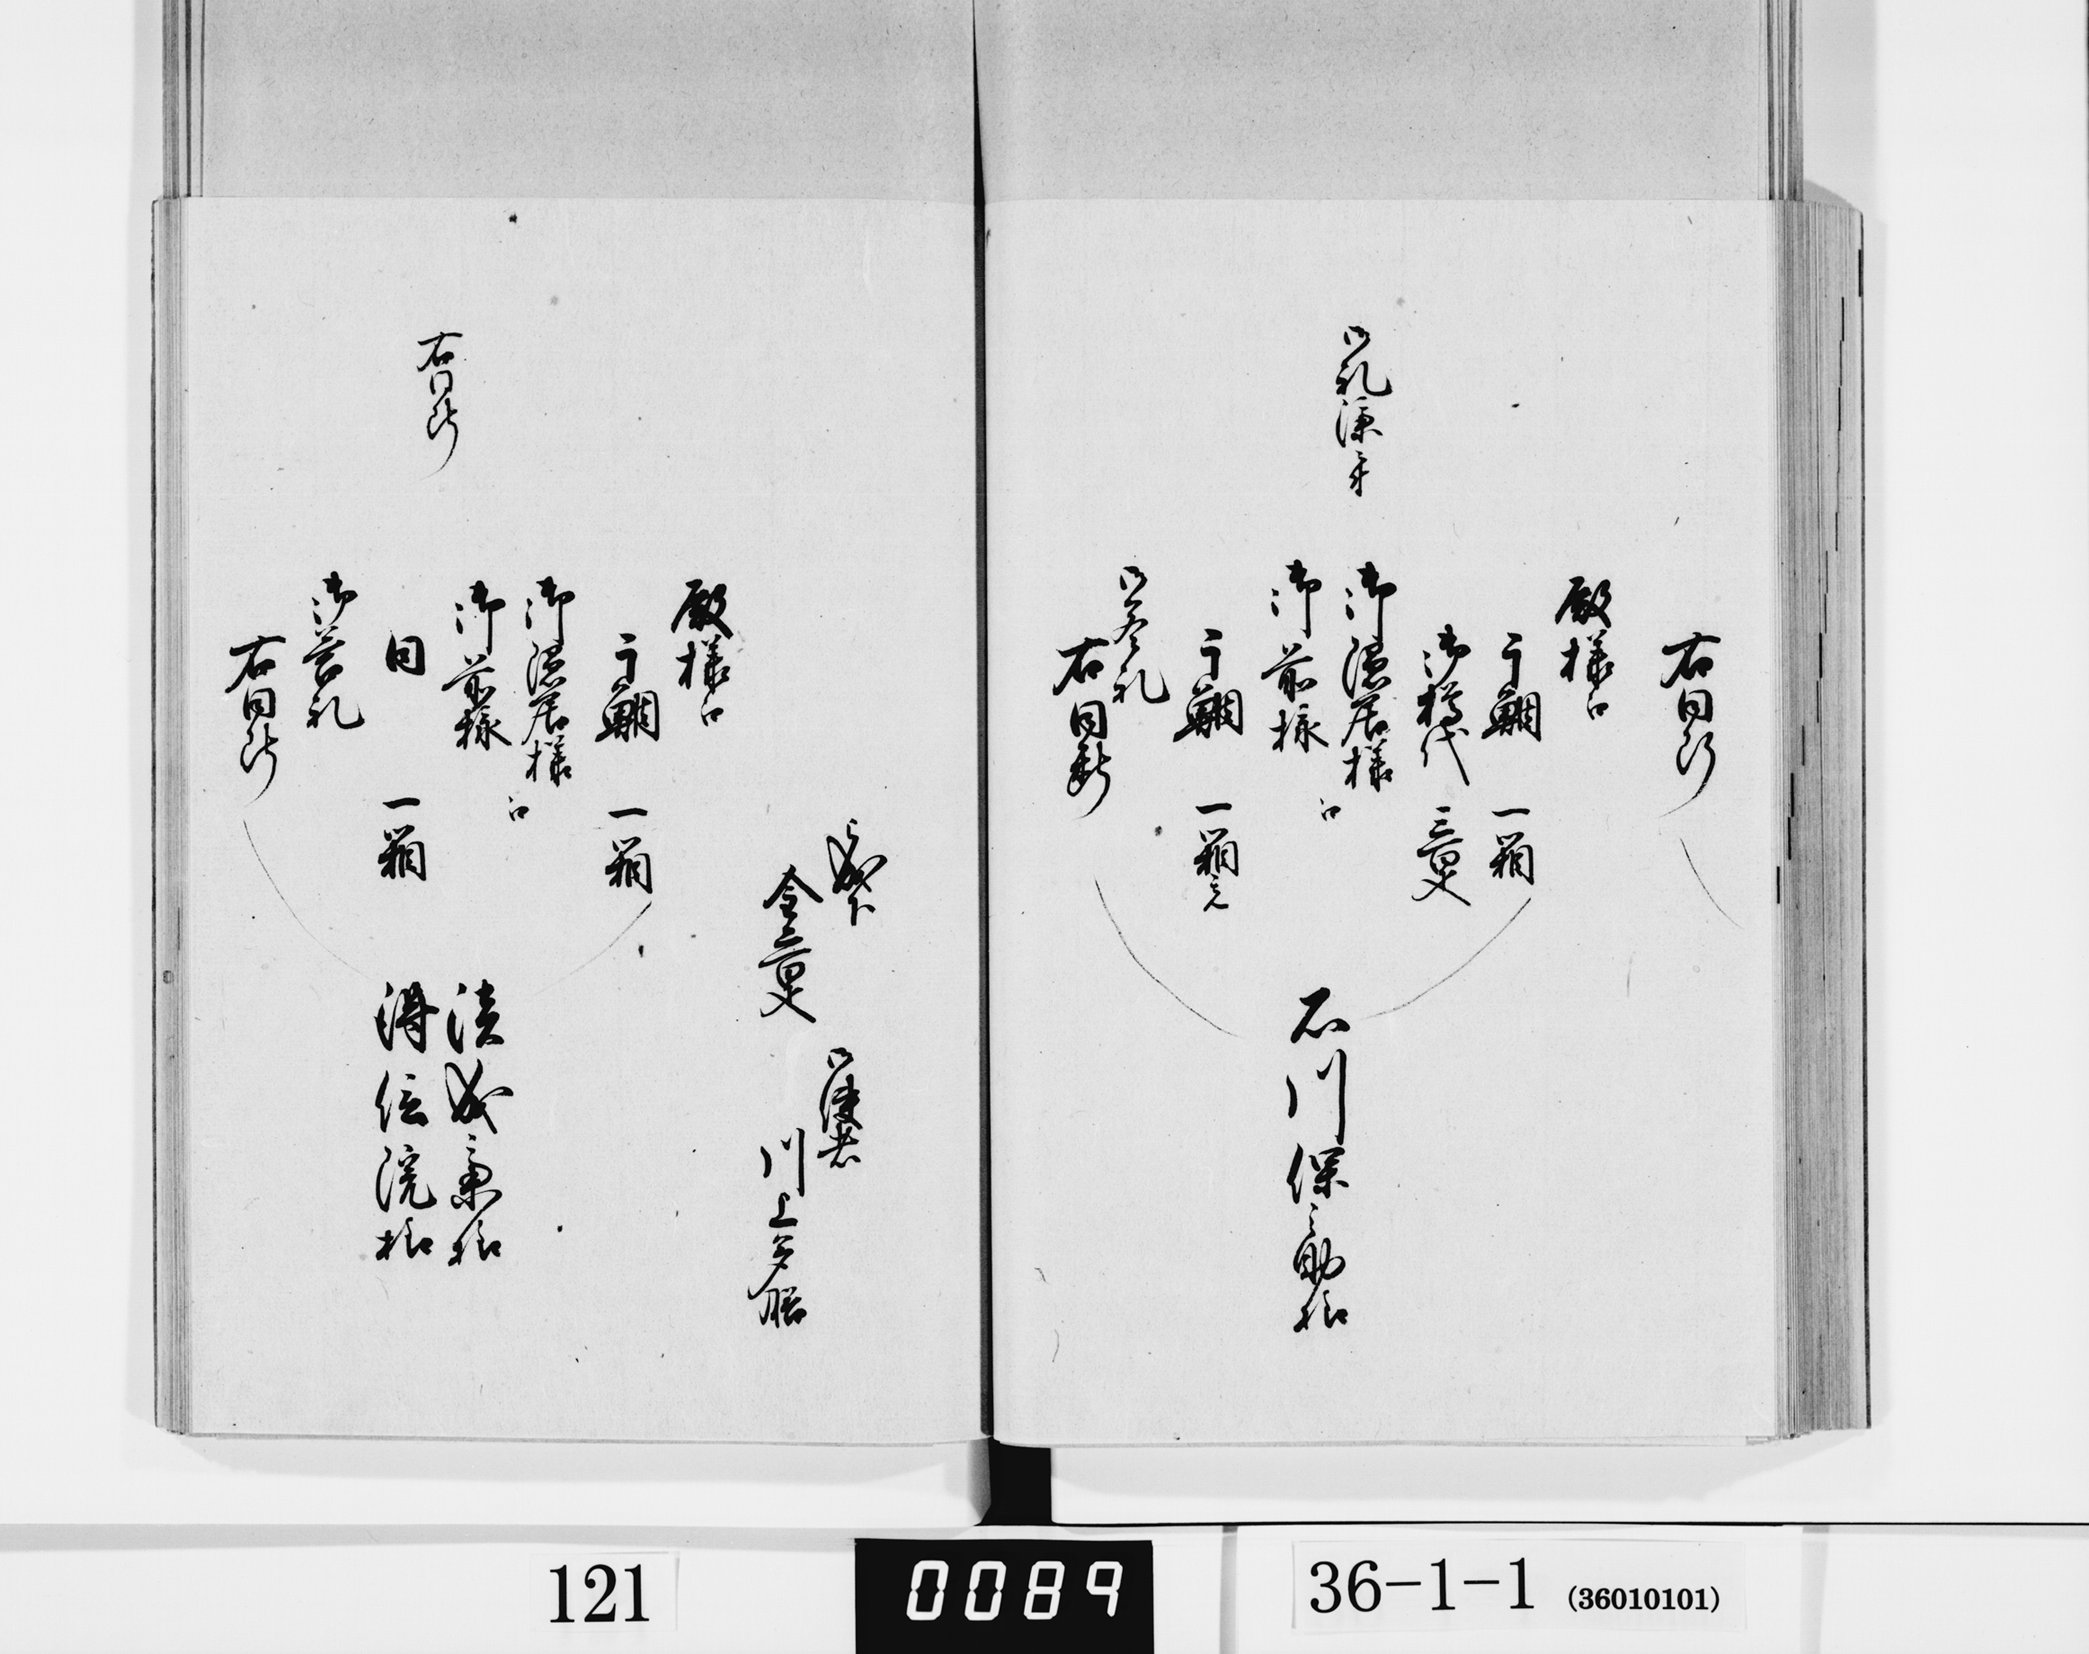 右同断
殿様江
干鯛 一箱
御樽代 三百疋
御隠居様
御前様 江
干鯛 一箱宛
右同断
石川保之助様
御礼済
金三百疋
御使者
川上多膳
殿様江
干鯛 一箱
御隠居様
御前様 江
同 一箱
御答礼
右同断
右同断
得信院様
121
0089
36-1-1 (36010101)